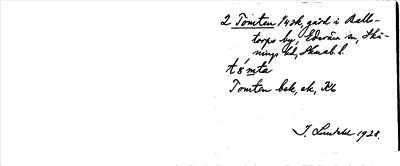 2 Tomten 1/4 sk, gård i Balle-
torps by, Edsvära sn, Ski-
nings hd, Skarab. l.
tómta
Tomten bek, ek, Kb
J. Lundahl 1928.